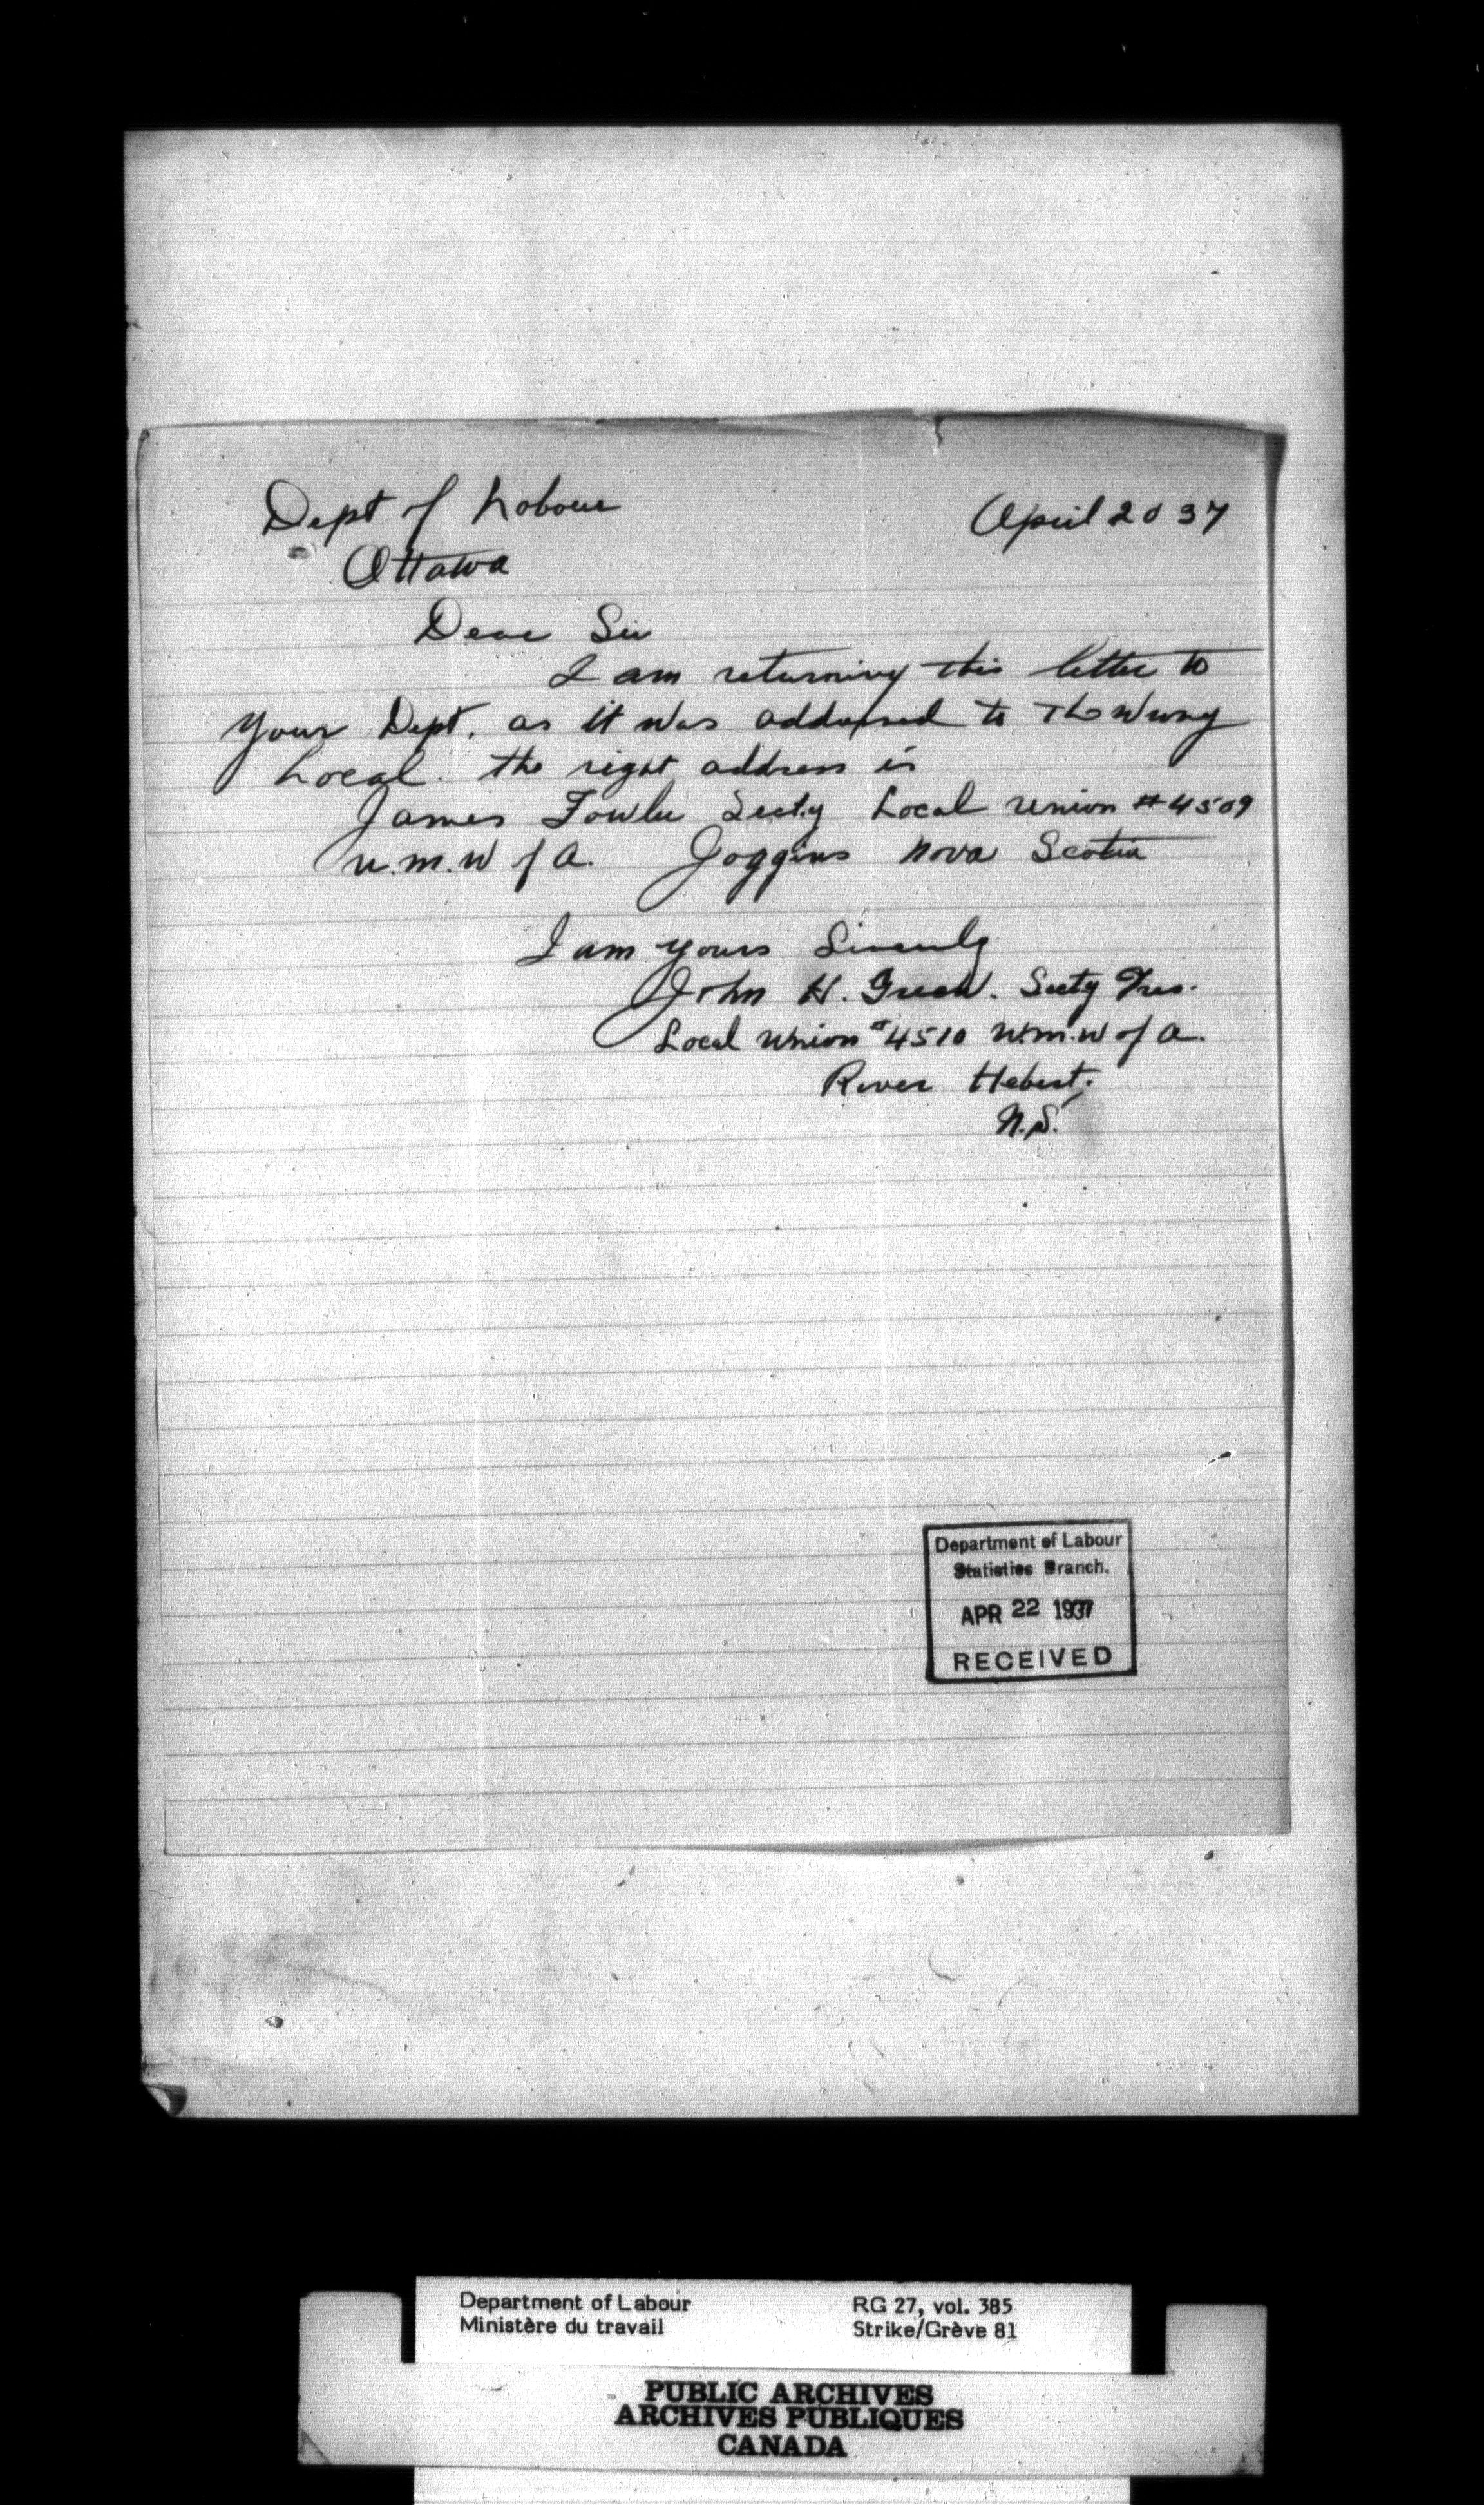 Dept of Labour
April 20 37
Ottawa
Dear Sir
I am returning this letter to
your Dept. as it was addressed to the wrong
Local. the right address is
James Fowler Secty Local Union #4509
U.M.W of A. Joggins Nova Scotia
I am yours Sincerely
John H. Green. Secty Tres.
Local Union #4510 U.M.W of A.
River Hebert.
N.S.
Department of Labour
Statistics Branch.
APR 22 1937
RECEIVED
Department of Labour
Ministère du travail
RG 27, vol. 385
Strike/Grève 81
PUBLIC ARCHIVES
ARCHIVES PUBLIQUES
CANADA